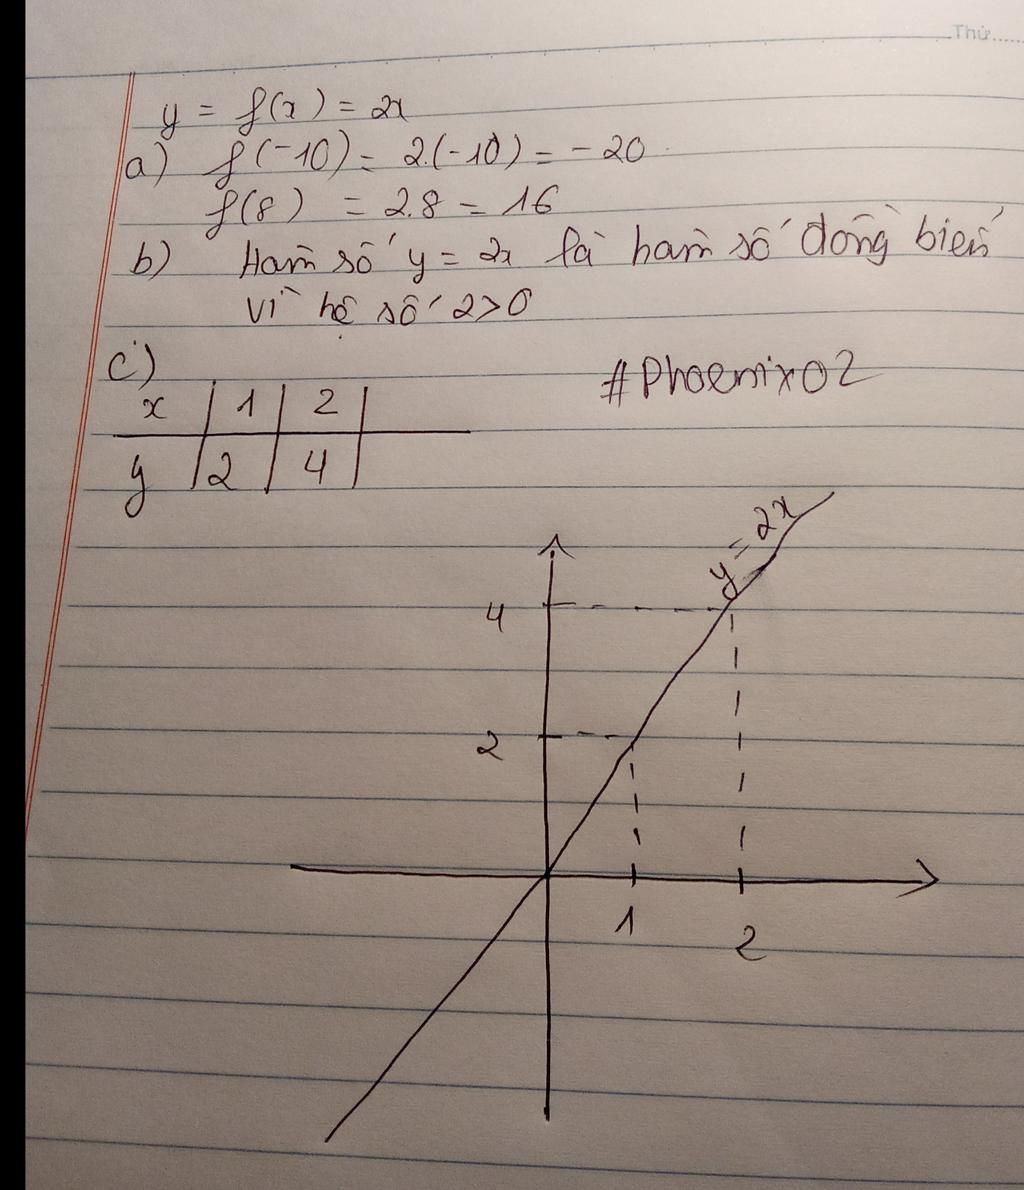 Thứ......
y = f(x) = 2x
a) f(-10) = 2.(-10) = -20
f(8) = 2.8 = 16
b) Hàm số y = 2x là hàm số đồng biến
vì hệ số 2>0
c)
x | 1 | 2 |
y | 2 | 4 |
#Phoenix02
y = 2x
4
2
1
2